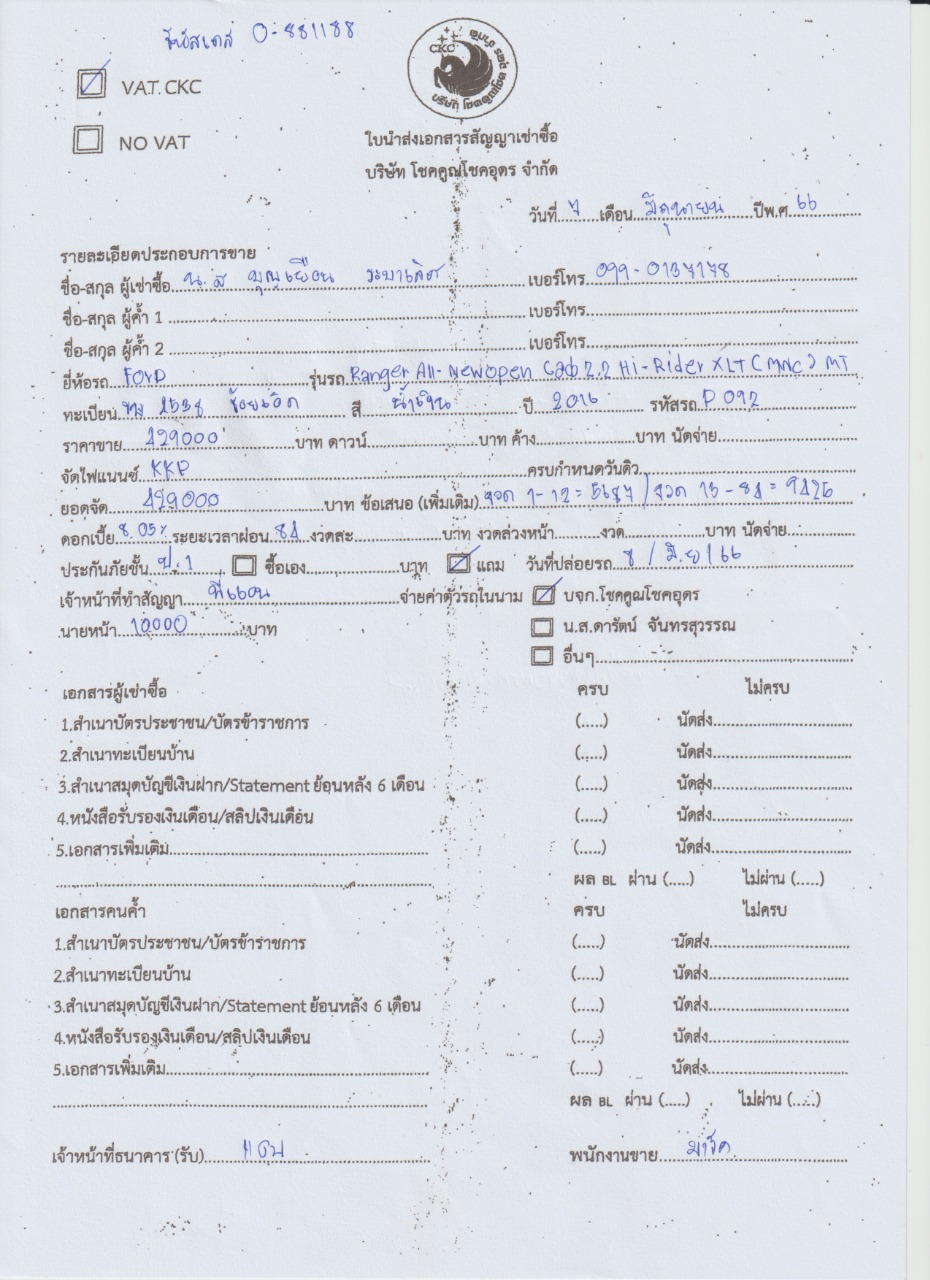 รหัสเคส 0-881188
CKC
บริษัท โชคคูณโชค อุดร จำกัด
VAT. CKC
NO VAT
ใบนำส่งเอกสารสัญญาเช่าซื้อ
บริษัท โชคคูณโชคอุดร จำกัด
วันที่ 7 เดือน มิถุนายน ปีพ.ศ 66
รายละเอียดประกอบการขาย
ชื่อ-สกุล ผู้เช่าซื้อ น.ส บุญเยือน เบอร์โทร 099-0137178
ชื่อ-สกุล ผู้ค้ำ 1 เบอร์โทร
ชื่อ-สกุล ผู้ค้ำ 2 เบอร์โทร
ยี่ห้อรถ FORD รุ่นรถ Ranger All-New open Cab 2.2 Hi-Rider XLT (MNC) MT
ทะเบียน 2538 ร้อยเอ็ด สี น้ำเงิน ปี 2016 รหัสรถ P 092
ราคาขาย 429000 บาท ดาวน์ บาท ค้าง บาท นัดจ่าย
จัดไฟแนนซ์ KKP ครบกำหนดวันดิว
ยอดจัด 429000 บาท ข้อเสนอ (เพิ่มเติม) งวด 1-12 = 5687 / งวด 13-84 = 9426
ดอกเบี้ย 8.05% ระยะเวลาผ่อน 84 งวดละ บาท งวดล่วงหน้า งวด บาท นัดจ่าย
ประกันภัยชั้น ป.1 ซื้อเอง บาท แถม วันที่ปล่อยรถ 8 / มิ.ย / 66
เจ้าหน้าที่ทำสัญญา จ่ายค่าตัวรถในนาม บจก.โชคคูณโชคอุดร
นายหน้า 10000 บาท น.ส.ดารัตน์ จันทรสุวรรณ
อื่นๆ
เอกสารผู้เช่าซื้อ ครบ ไม่ครบ
1.สำเนาบัตรประชาชน/บัตรข้าราชการ (.....) นัดส่ง
2.สำเนาทะเบียนบ้าน (.....) นัดส่ง
3.สำเนาสมุดบัญชีเงินฝาก/Statement ย้อนหลัง 6 เดือน (.....) นัดส่ง
4.หนังสือรับรองเงินเดือน/สลิปเงินเดือน (.....) นัดส่ง
5.เอกสารเพิ่มเติม (.....) นัดส่ง
ผล BL ผ่าน (.....) ไม่ผ่าน (.....)
เอกสารคนค้ำ ครบ ไม่ครบ
1.สำเนาบัตรประชาชน/บัตรข้าราชการ (.....) นัดส่ง
2.สำเนาทะเบียนบ้าน (.....) นัดส่ง
3.สำเนาสมุดบัญชีเงินฝาก/Statement ย้อนหลัง 6 เดือน (.....) นัดส่ง
4.หนังสือรับรองเงินเดือน/สลิปเงินเดือน (.....) นัดส่ง
5.เอกสารเพิ่มเติม (.....) นัดส่ง
ผล BL ผ่าน (.....) ไม่ผ่าน (.....)
เจ้าหน้าที่ธนาคาร (รับ) พนักงานขาย มาร์ค